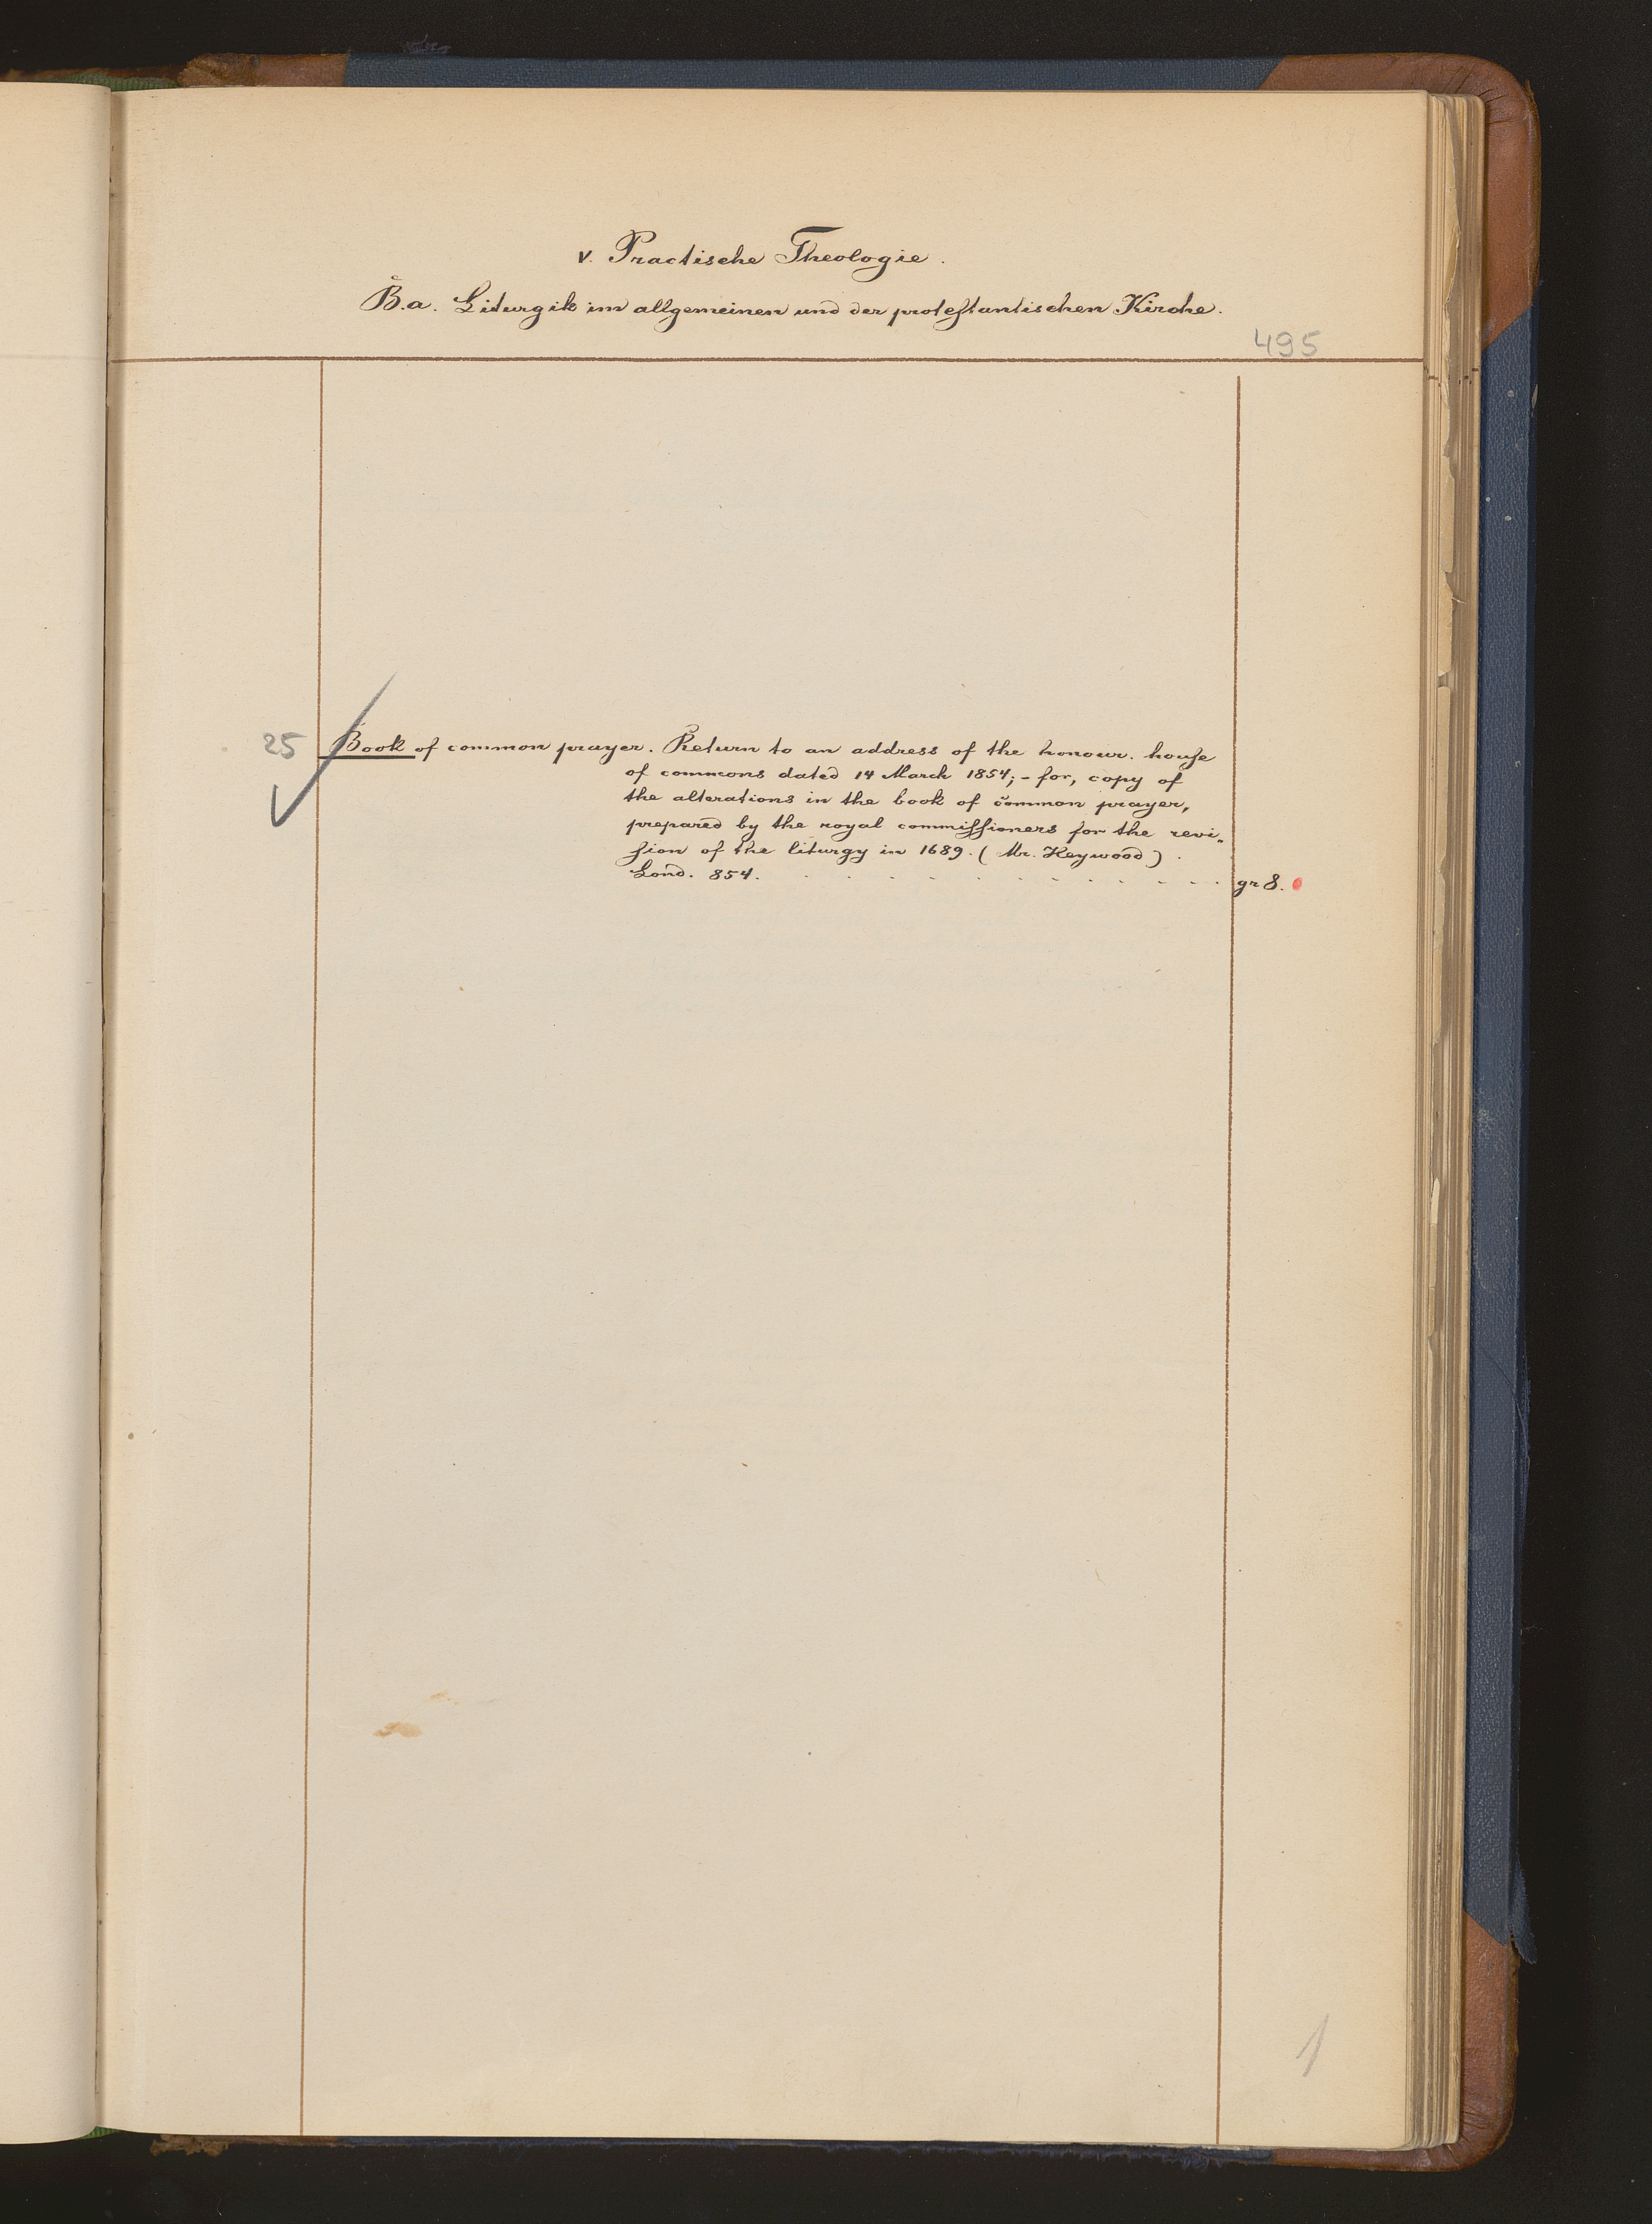 v. Practische Theologie.
B.a. Liturgik im allgemeinen und der protestantischen Kirche.
495
25 Book of common prayer. Return to an address of the honour. house
of commons dated 14 March 1854; - for, copy of
the alterations in the book of com̄on prayer,
prepared by the royal commissioners for the revi„
sion of the liturgy in 1689. (Mr. Heywood).
Lond. 854. . . . . . . . . . . . . gr 8.
1